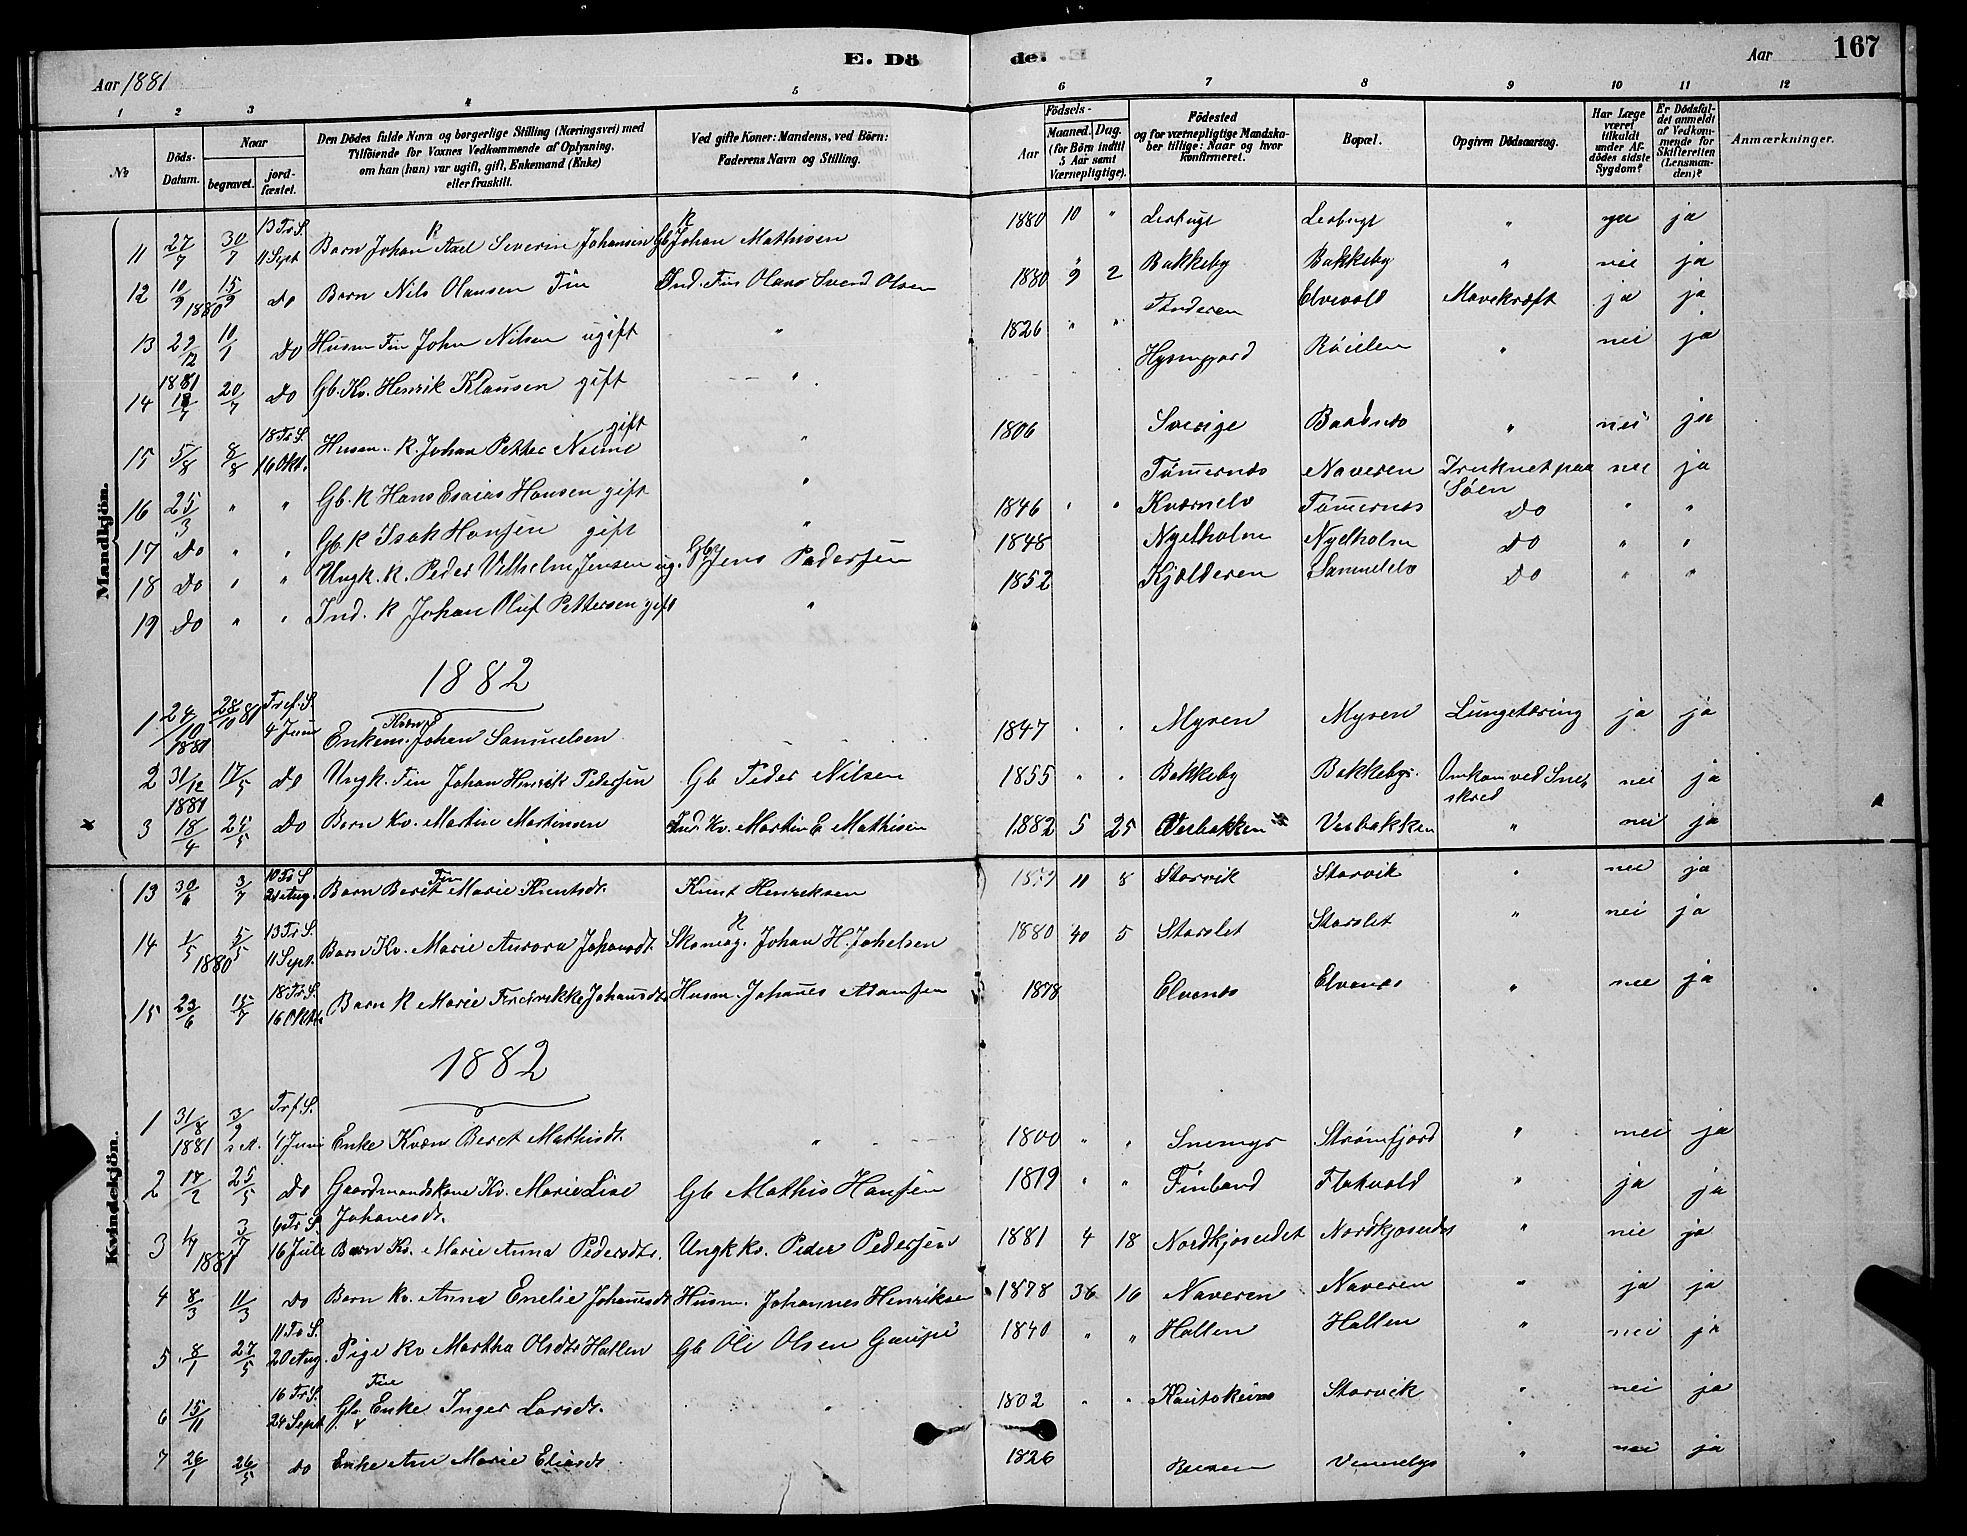 E. Dö de. 167
Aar 1881 Aar
1 2 3 4 5 6 7 8 9 10 11 12
№
Döds-Datum.
Naar begravet. jordfæstet.
Den Dödes fulde Navn og borgerlige Stilling (Næringsvei) med Tilföiende for Voxnes Vedkommende af Oplysning, om han (hun) var ugift, gift, Enkemand (Enke) eller fraskilt.
Ved gifte Koner: Mandens, ved Börn: Faderens Navn og Stilling.
Födsels- Aar Maaned. Dag. (for Börn indtil 5 Aar samt Værnepligtige).
Födested og for værnepligtige Mandskaber tillige: Naar og hvor konfirmeret.
Bopæl.
Opgiven Dödsaarsag.
Har Læge været tilkaldt under Afdödes sidste Sygdom?
Er Dödsfaldet anmeldt af Vedkommende for Skifteretten (Lensmanden)?
Anmærkninger.
Mandkjön.
11 27/7 30/7 13 Tr. S. 11 Sept Barn Johan Axel Severin Johansen Gb K Johan Mathisen 1880 10 " Lerbugt Lerbugt " ja ja
12 10/9 15/9 do Barn Nils Olausen Fin Ind. Fin Olaus Svend Olsen 1880 9 2 Bakkeby Bakkeby " nei ja
13 1880 29/12 10/1 do Husm Fin John Nilsen ugift " 1826 " " Elvevold Mavekræft ja ja
14 1881 18/7 20/7 do Gb. Kv. Henrik Klausen gift " " nei ja
15 5/8 8/8 18 Tr. S. 16 Okt. Husm. K. Johan Petter gift " 1806 Sverige " nei ja
16 25/3 " " Gb. K Hans Esaias Hansen gift " Naveren Druknet paa Söen nei ja
17 do " " Gb K Isak Hansen gift " 1846 " " Kværnelv do " "
18 do " " Ungk. K. Peder Vilhelm Jensen ug. Gb K Jens Pedersen 1848 Nyelholm Nyelholm do " "
19 do " " Ind. K Johan Oluf Pettersen gift " 1852 Kjælderen Samuelelv do " "
1882
1 24/10 1881 28/10 81 Tref. S. 4 Juni Enkem. Kvæn Johan Samuelsen 1847 " " Myren Myren Lungetæring ja ja
2 31/12 1881 17/5 do Ungk. Fin Johan Henrik Pedersen Gb Peder Nilsen 1855 " " Bakkeby Bakkeby Omkom ved Sneskred nei ja
x 3 18/4 24/5 do Barn Kv. Martin Martinsen Ind. Kv. Martin E Mathisen 1882 5 25 Verbakken Verbakken " nei ja
Kvindekjön.
13 30/6 3/7 10 Tr S 21 Aug. Barn Fin Beret Marie Knutsdt. Knut Henriksen 1879 11 8 Storvik Storvik " nei ja
14 1/5 5/5 13 Tr. S. 11 Sept. Barn Kv. Marie Aurora Johansdt. Skomag. K Johan H. Johelsen 1880 40 5 Storslet Storslet " nei ja
15 1880 23/6 18 Tr. S. 16 Okt. Barn K Marie Fredrikke Johansdt. Husm. Johannes Adamsen 1878 Elvenes Elvenes " nei ja
1882
1 31/8 1881 3/9 Trf. S. 4 Juni Enke Kvæn Beret Mathisdt. " 1800 " " Strømfjord " nei ja
2 17/2 25/5 do Gaardmandskone Kv. Marie Lise Johanesdt. Gb Mathis Hansen 1819 " " Finland Flatvold " ja ja
3 3/7 6 Tr S. 16 Juli Barn Kv. Marie Anna Pedersdt. Ungk kv. Peder Pedersen 1881 4 18 Nordkjoseidet Nordkjoseidet " nei ja
4 1881 8/3 11/3 do Barn Kv. Anna Emelie Johansdt Husm. Johannes Henriksen 1878 36 16 Naveren Naveren " ja ja
5 8/1 27/5 11 Tr S. 20 Aug. Pige Kv Martha Olsdt. Hallen Gb Ole Olsen 1840 " " Hallen Hallen " nei ja
6 15/11 16 Tr. S. 24 Sept Gb. Fin Enke Inger Larsdt. " 1802 " " Kautokeino Storvik " nei ja
7 26/1 26/5 do Enke Ane Marie Eliasdt 1826 " nei ja